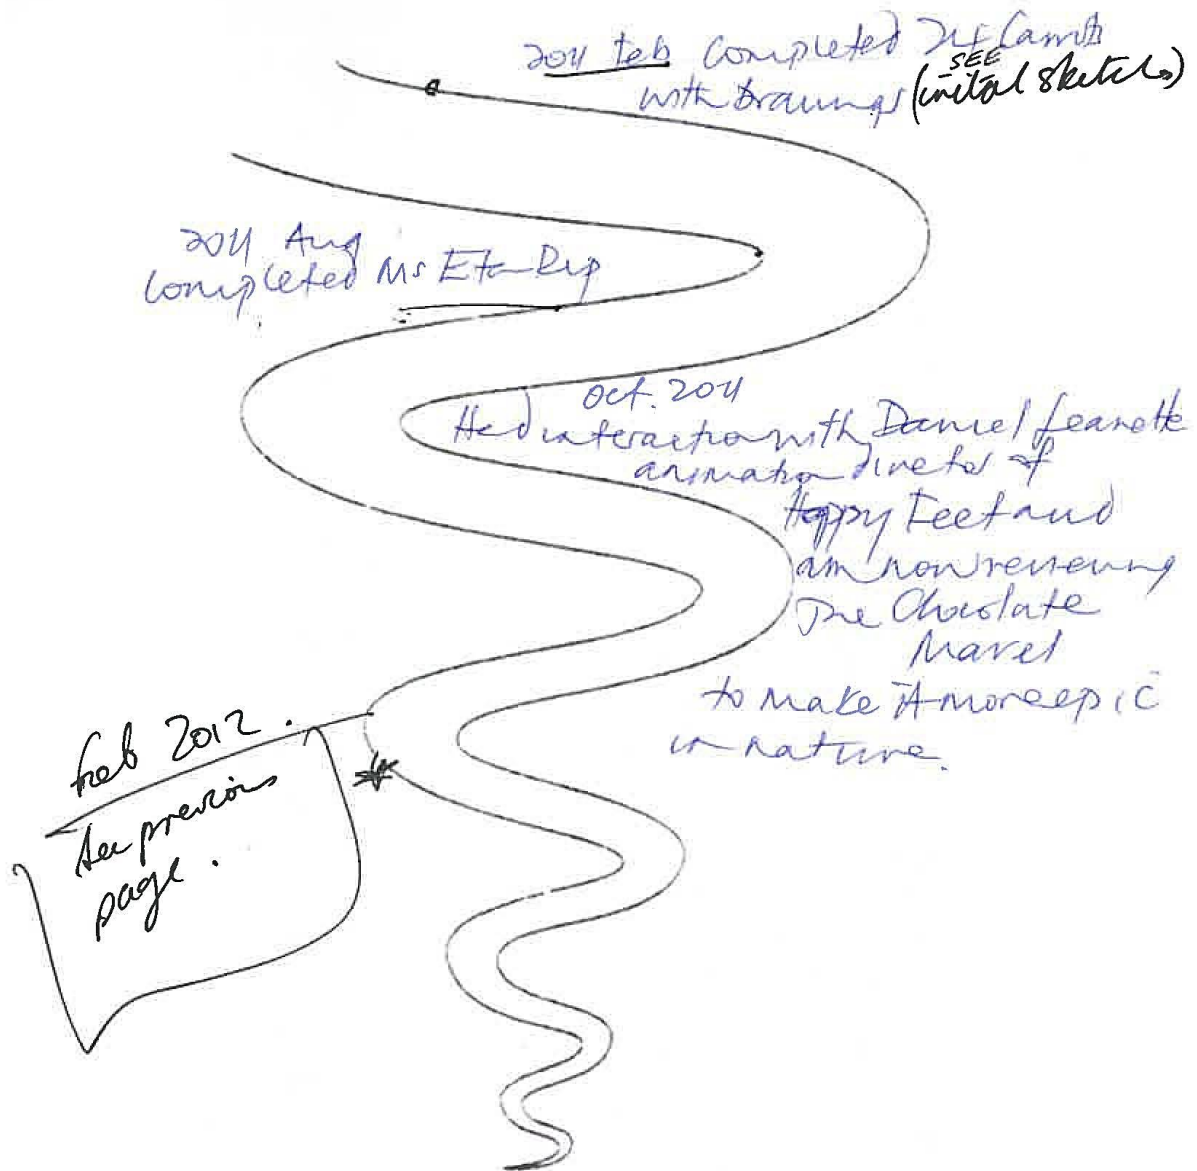 2011 Feb Completed
SEE
with Drawings (initial sketches)
2011 Aug
Completed Ms
Oct. 2011
Had interaction with Daniel Jeanette
animation director of
Happy Feet and
am now reviewing
The Chocolate
Marvel
to make it more epic
in nature.
Feb 2012.
See previous
page.